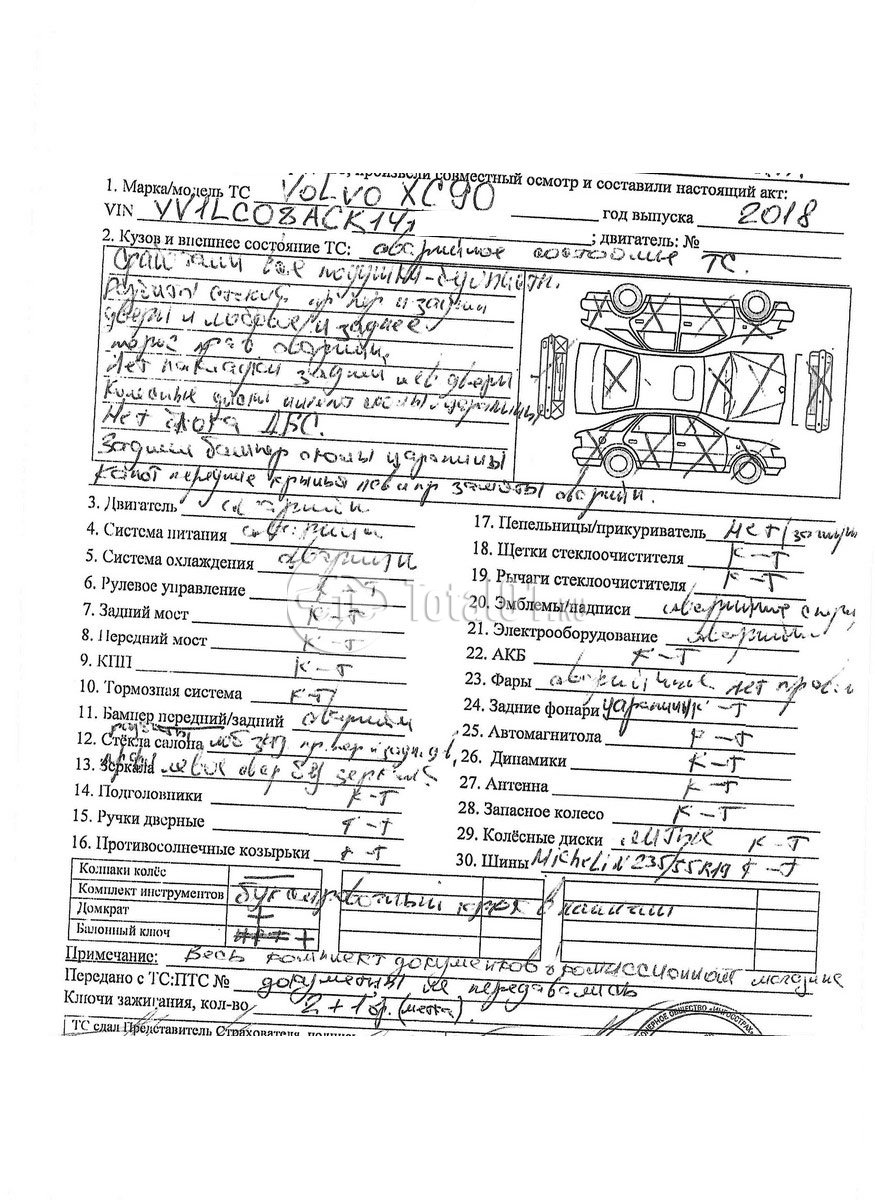 произвели совместный осмотр и составили настоящий акт:
1. Марка/модель ТС VOLVO XC90
VIN YV1LC08ACK141 год выпуска 2018
2. Кузов и внешнее состояние ТС: аварийное состояние ТС. ; двигатель: №
все подушки безопасности.
пр пер и задн
двери и лобовое и заднее
прав аварийн
Нет накладки задней лев двери
Колесные диски имеют сколы царапины
Нет блока ДВС.
Задний бампер сколы царапины
капот передние крылья лев и пр замяты аварийн.
3. Двигатель аварийн
4. Система питания аварийн
5. Система охлаждения аварийн
6. Рулевое управление к-т
7. Задний мост к-т
8. Передний мост к-т
9. КПП к-т
10. Тормозная система к-т
11. Бампер передний/задний аварийн
12. Стёкла салона
13. Зеркала левое авар без зеркал
14. Подголовники к-т
15. Ручки дверные к-т
16. Противосолнечные козырьки к-т
17. Пепельницы/прикуриватель нет/
18. Щетки стеклоочистителя к-т
19. Рычаги стеклоочистителя к-т
20. Эмблемы/надписи аварийные
21. Электрооборудование аварийн
22. АКБ к-т
23. Фары аварийные нет
24. Задние фонари царапины к-т
25. Автомагнитола к-т
26. Динамики к-т
27. Антенна к-т
28. Запасное колесо к-т
29. Колёсные диски литые к-т
30. Шины Michelin 235/55R19 к-т
Колпаки колёс —
Комплект инструментов буксировочный крюк в наличии
Домкрат +
Балонный ключ +
Примечание: Весь комплект документов в комиссионном магазине
Передано с ТС:ПТС № документы не передавались
Ключи зажигания, кол-во 2+1 бр. (метка).
ТС сдал Представитель Страхователя, подпись
ОБЩЕСТВО «ИНГОССТРАХ»
Total01.RU